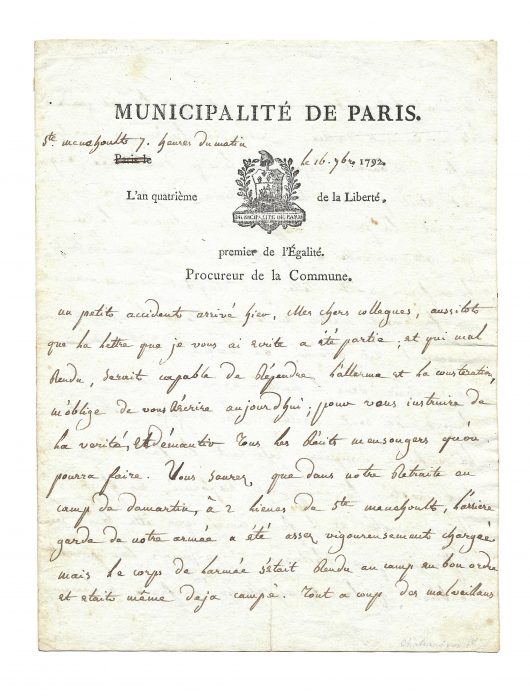 MUNICIPALITÉ DE PARIS.
Ste. menehoult 7. heures du matin
Paris le
le 16. 7bre. 1792.
L'an quatrième
de la Liberté.
MUNICIPALITE DE PARIS
premier de l'Égalité.
Procureur de la Commune.
un petit accident arrivé hier, Mes chers collegues, aussitôt
que la lettre que je vous ai ecrite a été partie, et qui mal
Rendu, serait capable de Répendre l'allarme et la consternation,
m'oblige de vous Récrire aujourd'hui; pour vous instruire de
la verité, et démentir tous les Récits mensongers qu'on
pourra faire. Vous saurez, que dans notre Retraite au
camp de damartin, à 2 lieues de Ste menehoult, l'arriere
garde de notre armée a été assez vigoureusement chargée
mais le corps de l'armée s'était Rendu au camp en bon ordre
et etait même deja campé. Tout a coup des malveillans